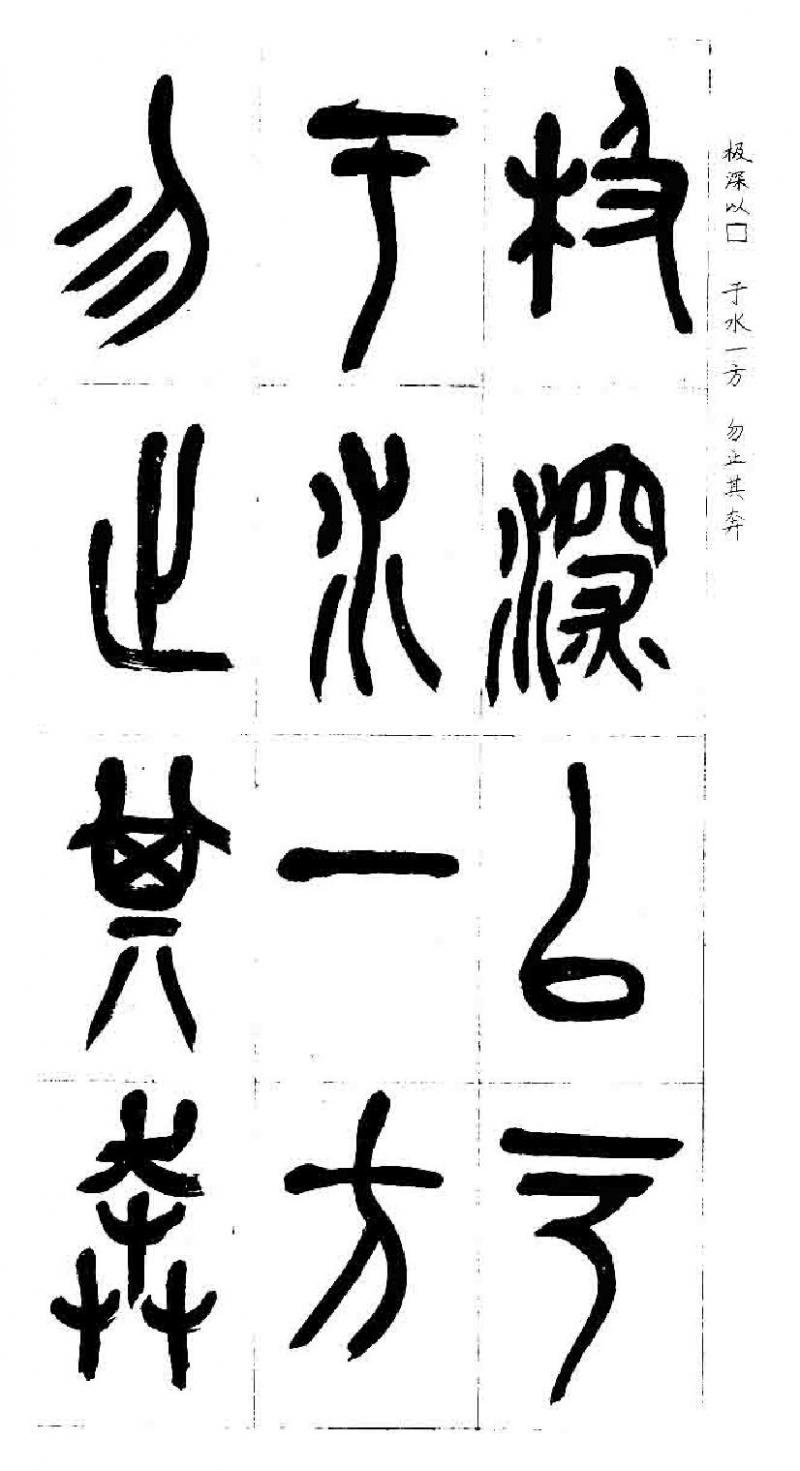 极深以□ 于水一方 勿止其奔
极深以
于水一方
勿止其奔